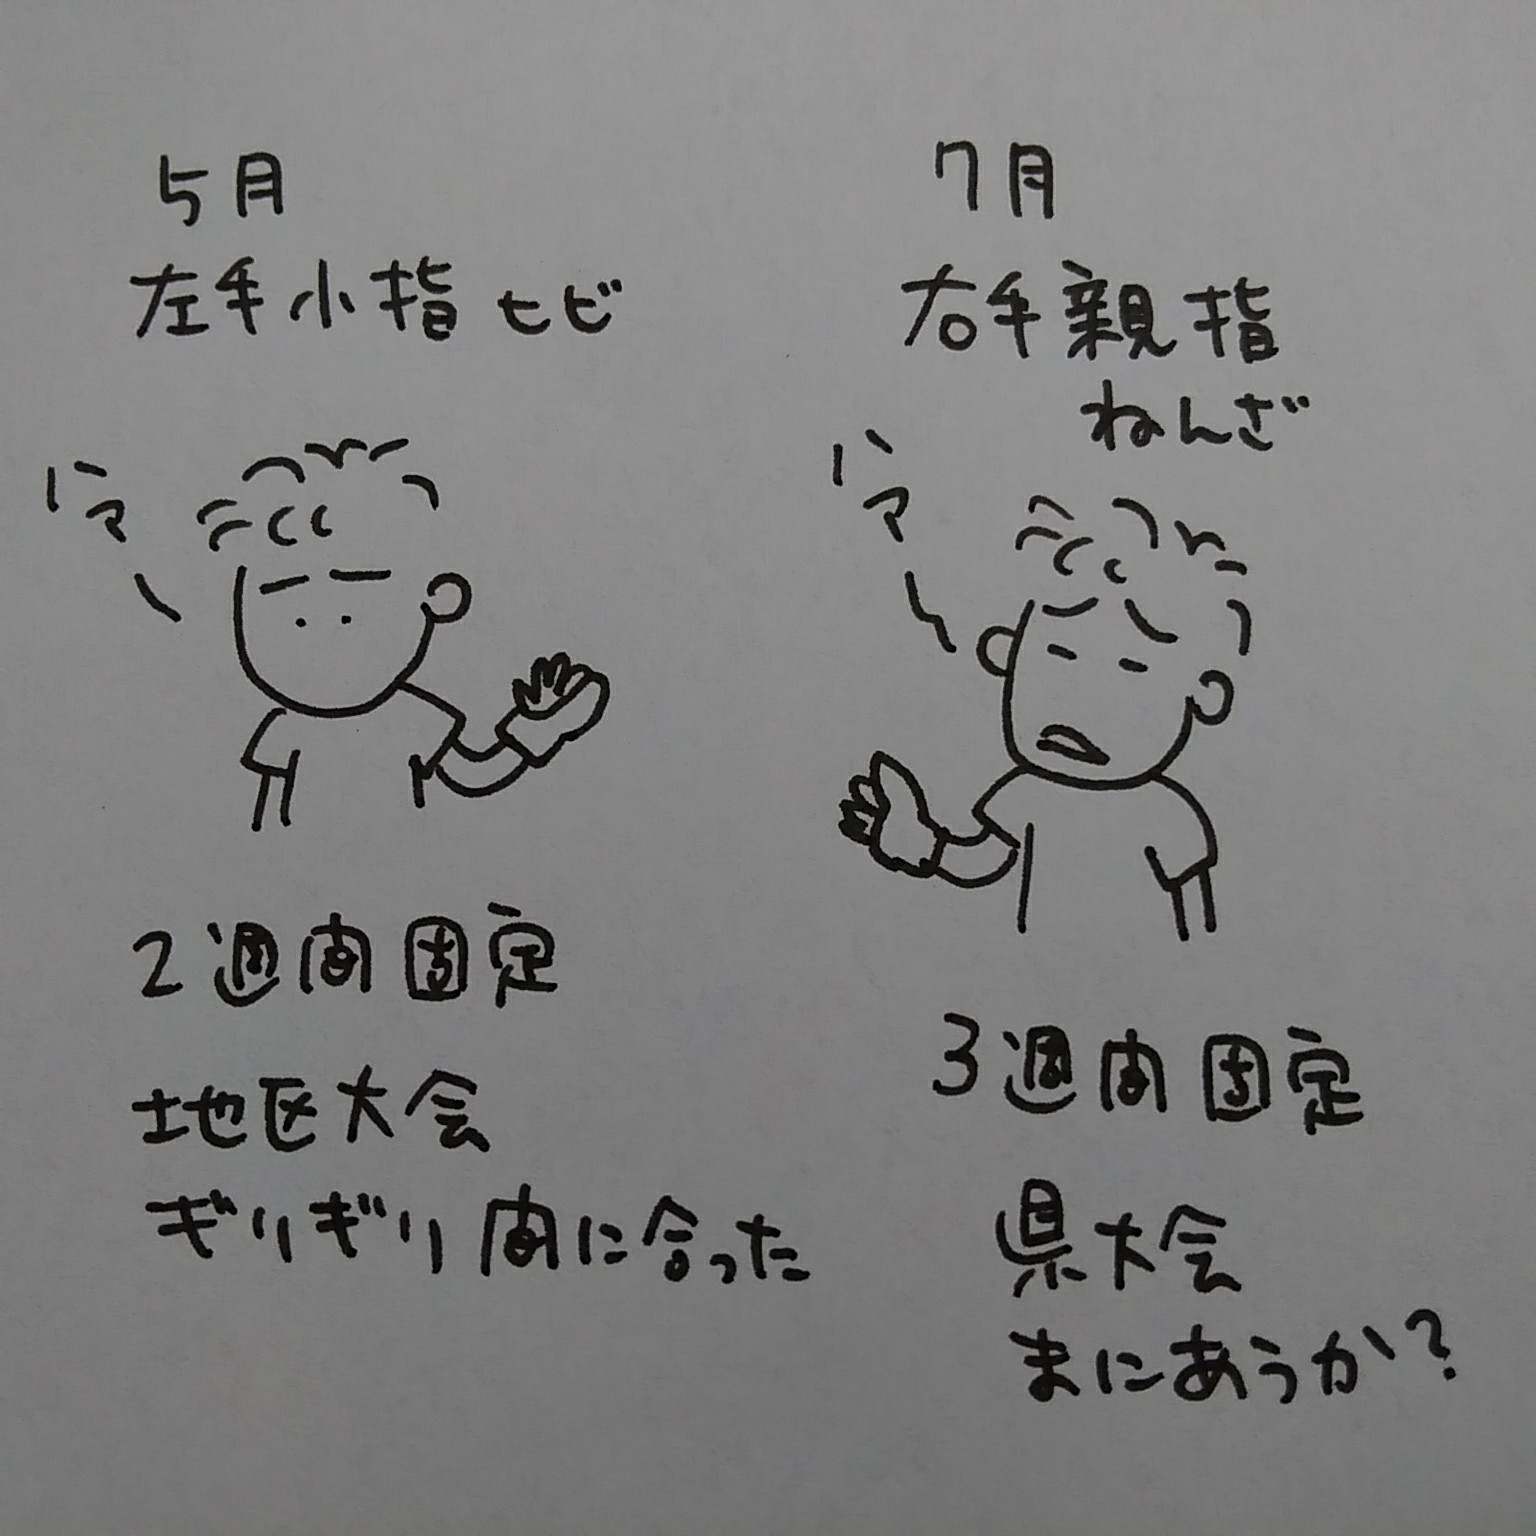 5月
左手小指ヒビ
ハマー
2週間固定
地区大会
ギリギリ間に合った
7月
右手親指
ねんざ
ハマー
3週間固定
県大会
まにあうか?